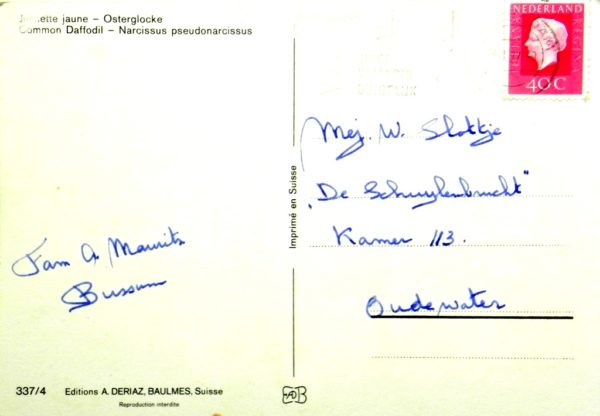 Jonette jaune – Osterglocke
Common Daffodil – Narcissus pseudonarcissus
NEDERLAND
JULIANA REGINA
40C
Mej. W. Slokkje
„De Schuylenbrucht"
Kamer 113.
Oudewater
Imprimé en Suisse
Fam A. Maurits
Bussum
337/4 Editions A. DERIAZ, BAULMES, Suisse
Reproduction interdite